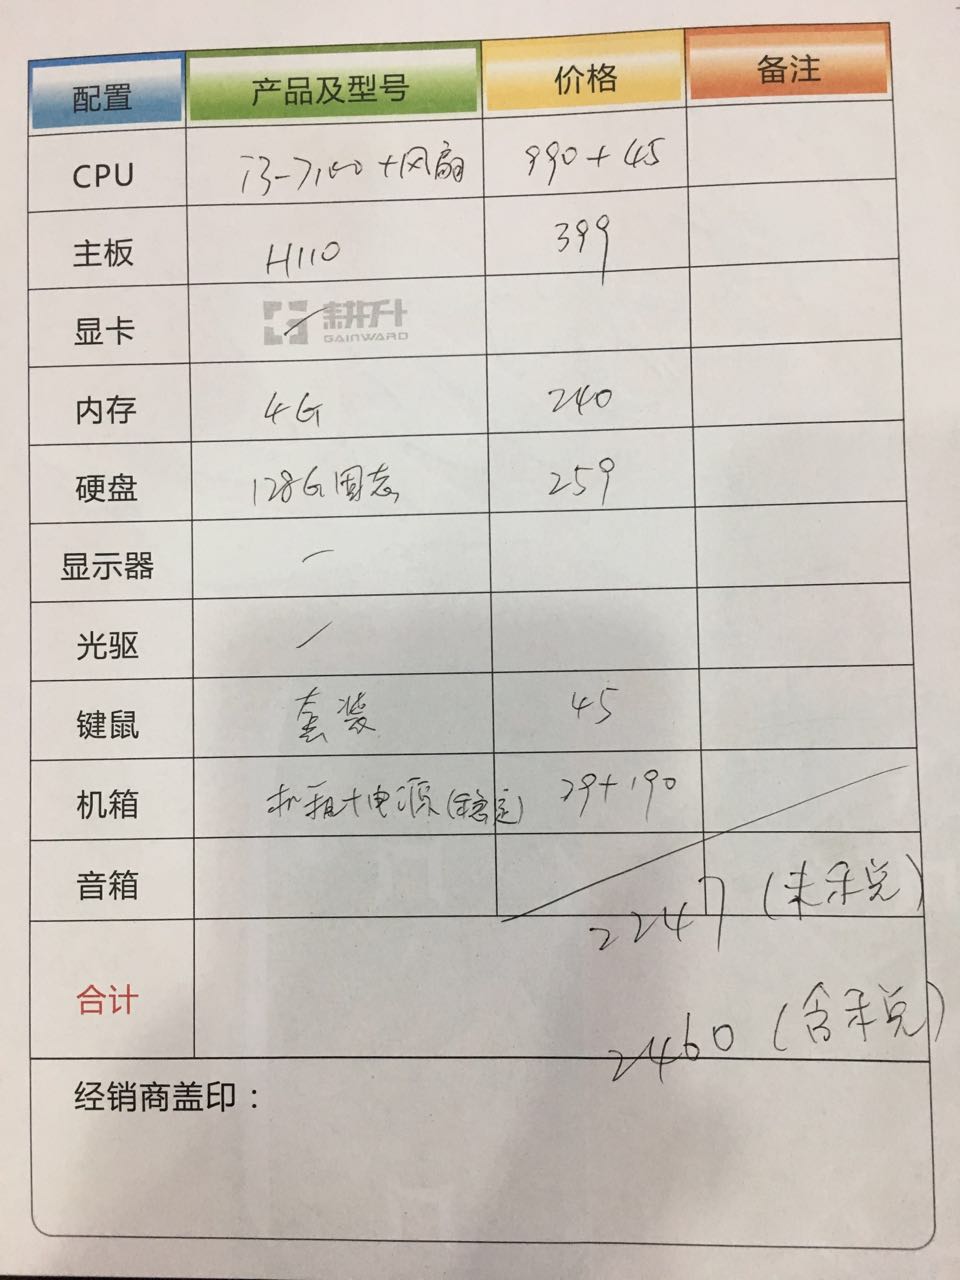 配置 产品及型号 价格 备注
CPU i3-7100+风扇 990+45
主板 H110 399
显卡 耕升
GAINWARD
内存 4G 240
硬盘 128G固态 259
显示器 —
光驱
键鼠 套装 45
机箱 机箱+电源(稳定) 79+190
音箱
2247 (未税)
合计
2460 (含税)
经销商盖印：